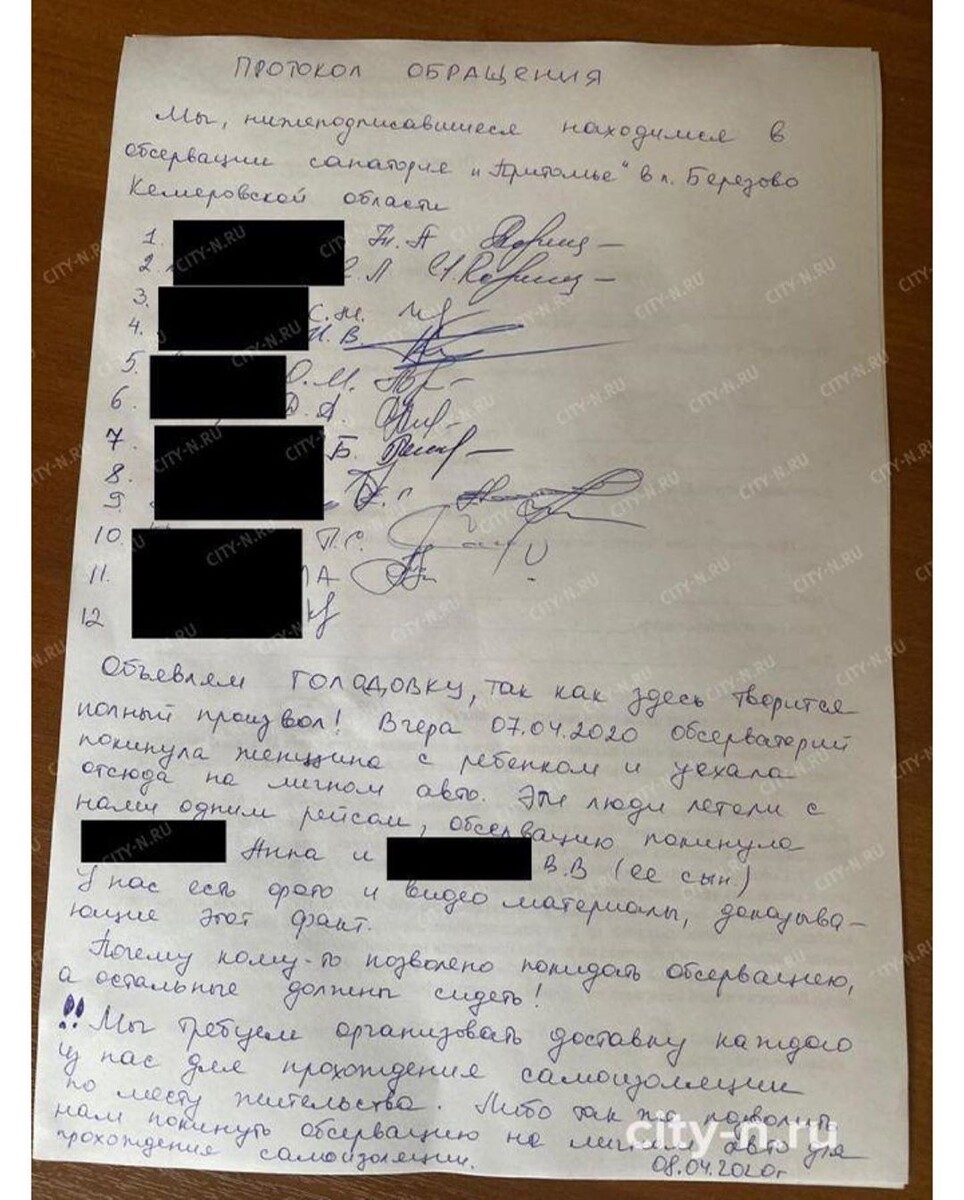 ПРОТОКОЛ ОБРАЩЕНИЯ
Мы, нижеподписавшиеся находимся в
обсервации санатория "Притомье" в п. Березово
Кемеровской области
1.
2. Л
3. С.Ж.
4. И.В.
5. О.М.
6. Д.А.
7. Б.
8.
9
10. П.С.
11. А
12
Объевлям ГОЛАДОВКУ, так как здесь творится
полный произвол! Вчера 07.04.2020 обсерваторий
покинула женщина с ребенком и уехала
отсюда на личном авто. Эти люди летели с
нами одним рейсом, обсервацию покинула
Анна и В.В (ее сын)
У нас есть фото и видео материалы, доказыва-
ющие этот факт.
Почему кому-то позволено покидать обсервацию,
а остальные должны сидеть!
!! Мы требуем организовать доставку каждого
из нас для прохождения самоизоляции
по месту жительства. Либо так же позволить
нам покинуть обсервацию на личных авто для
прохождение самоизоляции.
08.04.2020г
city-n.ru
CITY-N.RU